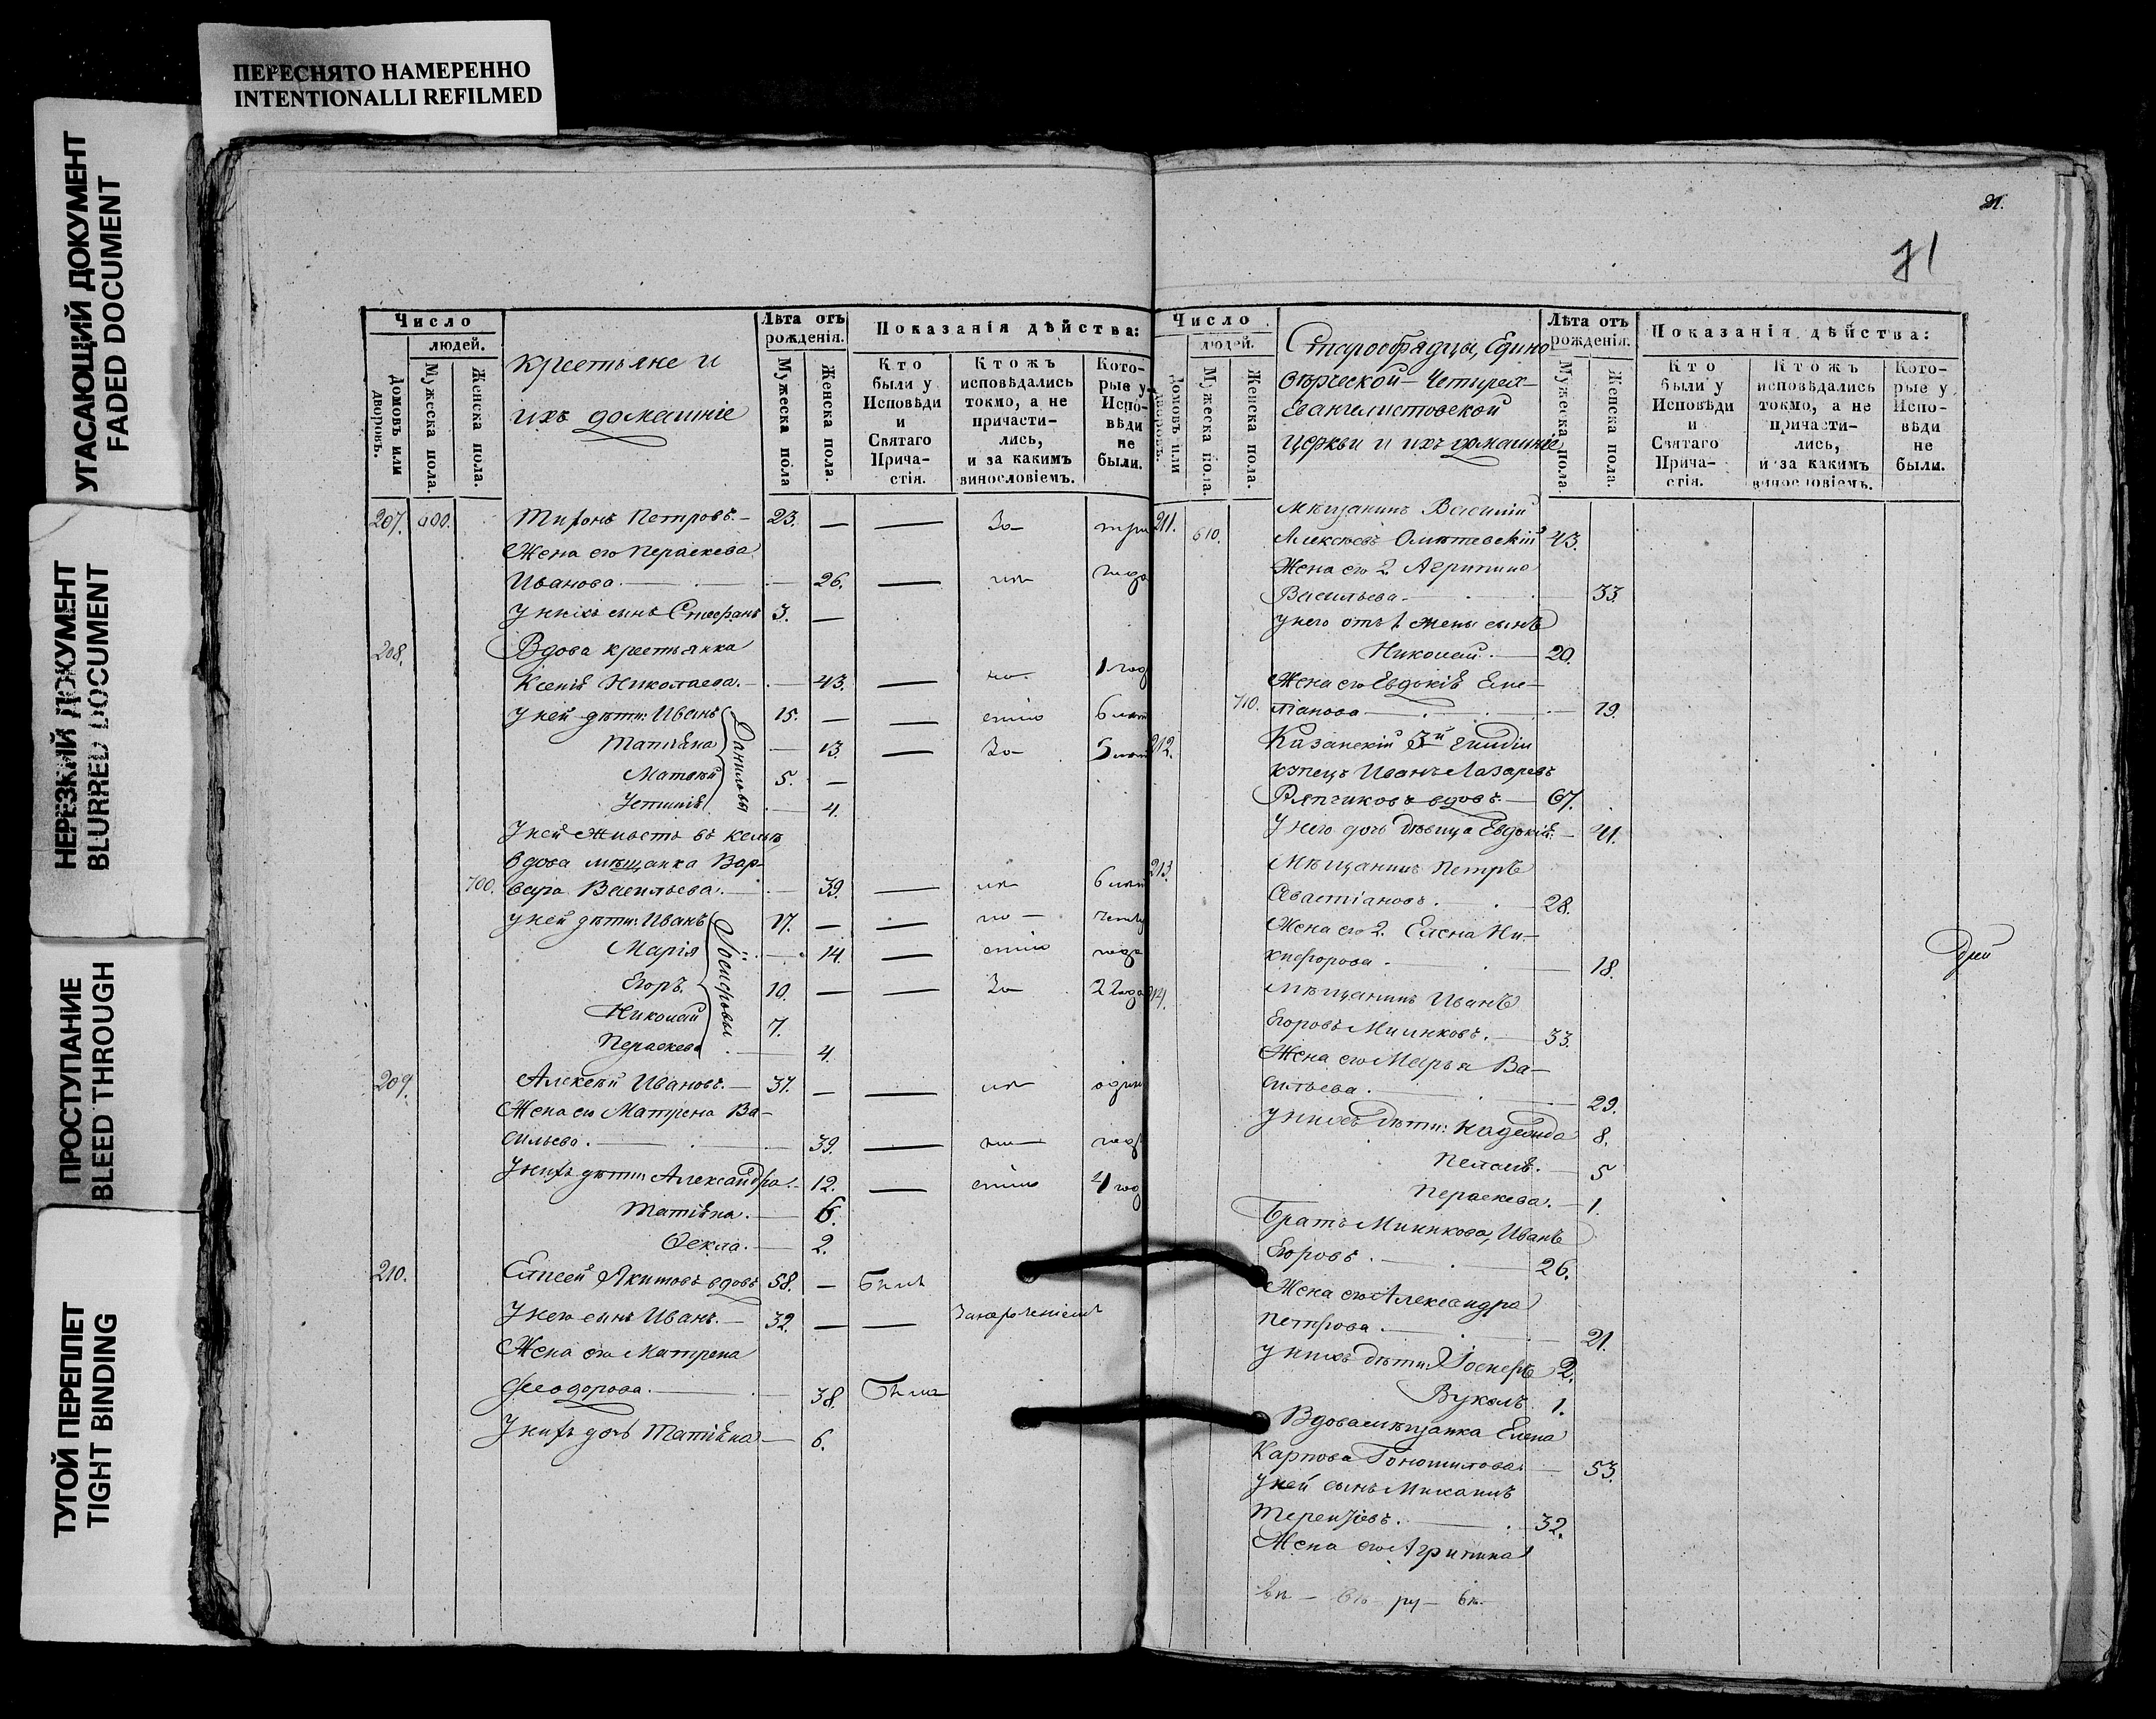 ПЕРЕСНЯТО НАМЕРЕННО
INTENTIONALLI REFILMED
УГАСАЮЩИЙ ДОКУМЕНТ
FADED DOCUMENT
НЕРЕЗКИЙ ДОКУМЕНТ
BLURRED DOCUMENT
ПРОСТУПАНИЕ
BLEED THROUGH
ТУГОЙ ПЕРЕПЛЕТ
TIGHT BINDING
Число
людей.
Домовъ или дворовъ.
Мужеска пола.
Женска пола.
крестьяне и
ихъ домашніе
Лѣта отъ рожденія.
Мужеска пола
Женска пола.
Показанія дѣйства:
Кто были у Исповѣди и Святаго Прича-стія.
Ктожъ исповѣдались токмо, а не причасти-лись, и за какимъ винословіемъ.
Кото-рые у Испо-вѣди не были.
207. 600. Тихонъ Петровъ. — 23. — — За три
Жена его Параскева
Иванова. — 26. — года
У нихъ сынъ Стефанъ 3. —
208. Вдова крестьянка
Ксенія Николаева. — 43. — 1 год
У ней дѣти: Иванъ 15. — — 6 лѣт
Татіана — 13. — За 5 лѣт
Матвѣй 5. —
Устинія — 4.
Даниловы
У ней живетъ въ кельѣ
вдова мѣщанка Вар-
700. вара Васильева. — 39. — 6 лѣт
У ней дѣти: Иванъ 17. — —
Марія — 14. — года
Егоръ. 10. — — За 2 года
Николай 7.
Параскева — 4.
Іосифовы
209. Алексѣй Ивановъ. — 37. — — один
Жена его Матрена Ва-
сильева. — 39. — год
У нихъ дѣти: Александра. — 12. — 4 год
Татіана. — 6.
Ѳекла. — 2.
210. Елисей Якимовъ вдовъ 58. — Былъ
У него сынъ Иванъ. — 32. — —
Жена его Матрена
Ѳеодорова. — 38. Была
У нихъ дочь Татіана — 6.
21.
71
Число
людей.
Домовъ или дворовъ.
Мужеска пола.
Женска пола.
Старообрядцы, Едино-
вѣрческой — Четырех-
Евангелистовской
церкви и ихъ домашніе
Лѣта отъ рожденія.
Мужеска пола.
Женска пола.
Показанія дѣйства:
Кто были у Исповѣди и Святаго Прича-стія.
Ктожъ исповѣдались токмо, а не причасти-лись, и за какимъ винословіемъ.
Кото-рые у Испо-вѣди не были.
211. Мѣщанинъ Василій
610. Алексѣевъ 43.
Жена его 2. Агрипина
Васильева — 33.
У него отъ 1. жены сынъ
Николай. — 20.
Жена его Евдокія Еме-
710. ліанова — 19.
212. Казанскій 3й гильдіи
купецъ Иванъ Лазаревъ
Ряпчиковъ вдовъ. — 67.
У него дочь дѣвица Евдокія. — 41.
213. Мѣщанинъ Петръ
Севастіановъ. — 28.
Жена его 2. Елена Ни-
кифорова — 18.
214. Мѣщанинъ Иванъ
Егоровъ — 33.
Жена его Марья Ва-
сильева. — 29.
У нихъ дѣти: Надежда 8.
Пелагія. — 5
Параскева. — 1.
Братъ Иванъ
Егоровъ. — 26.
Жена его Александра
Петрова. — 21.
У нихъ дѣти: Іосифъ 2.
Вуколъ. 1.
Вдова мѣщанка Елена
Карпова — 53.
У ней сынъ Михаилъ
Терентіевъ. — 32.
Жена его Агрипина